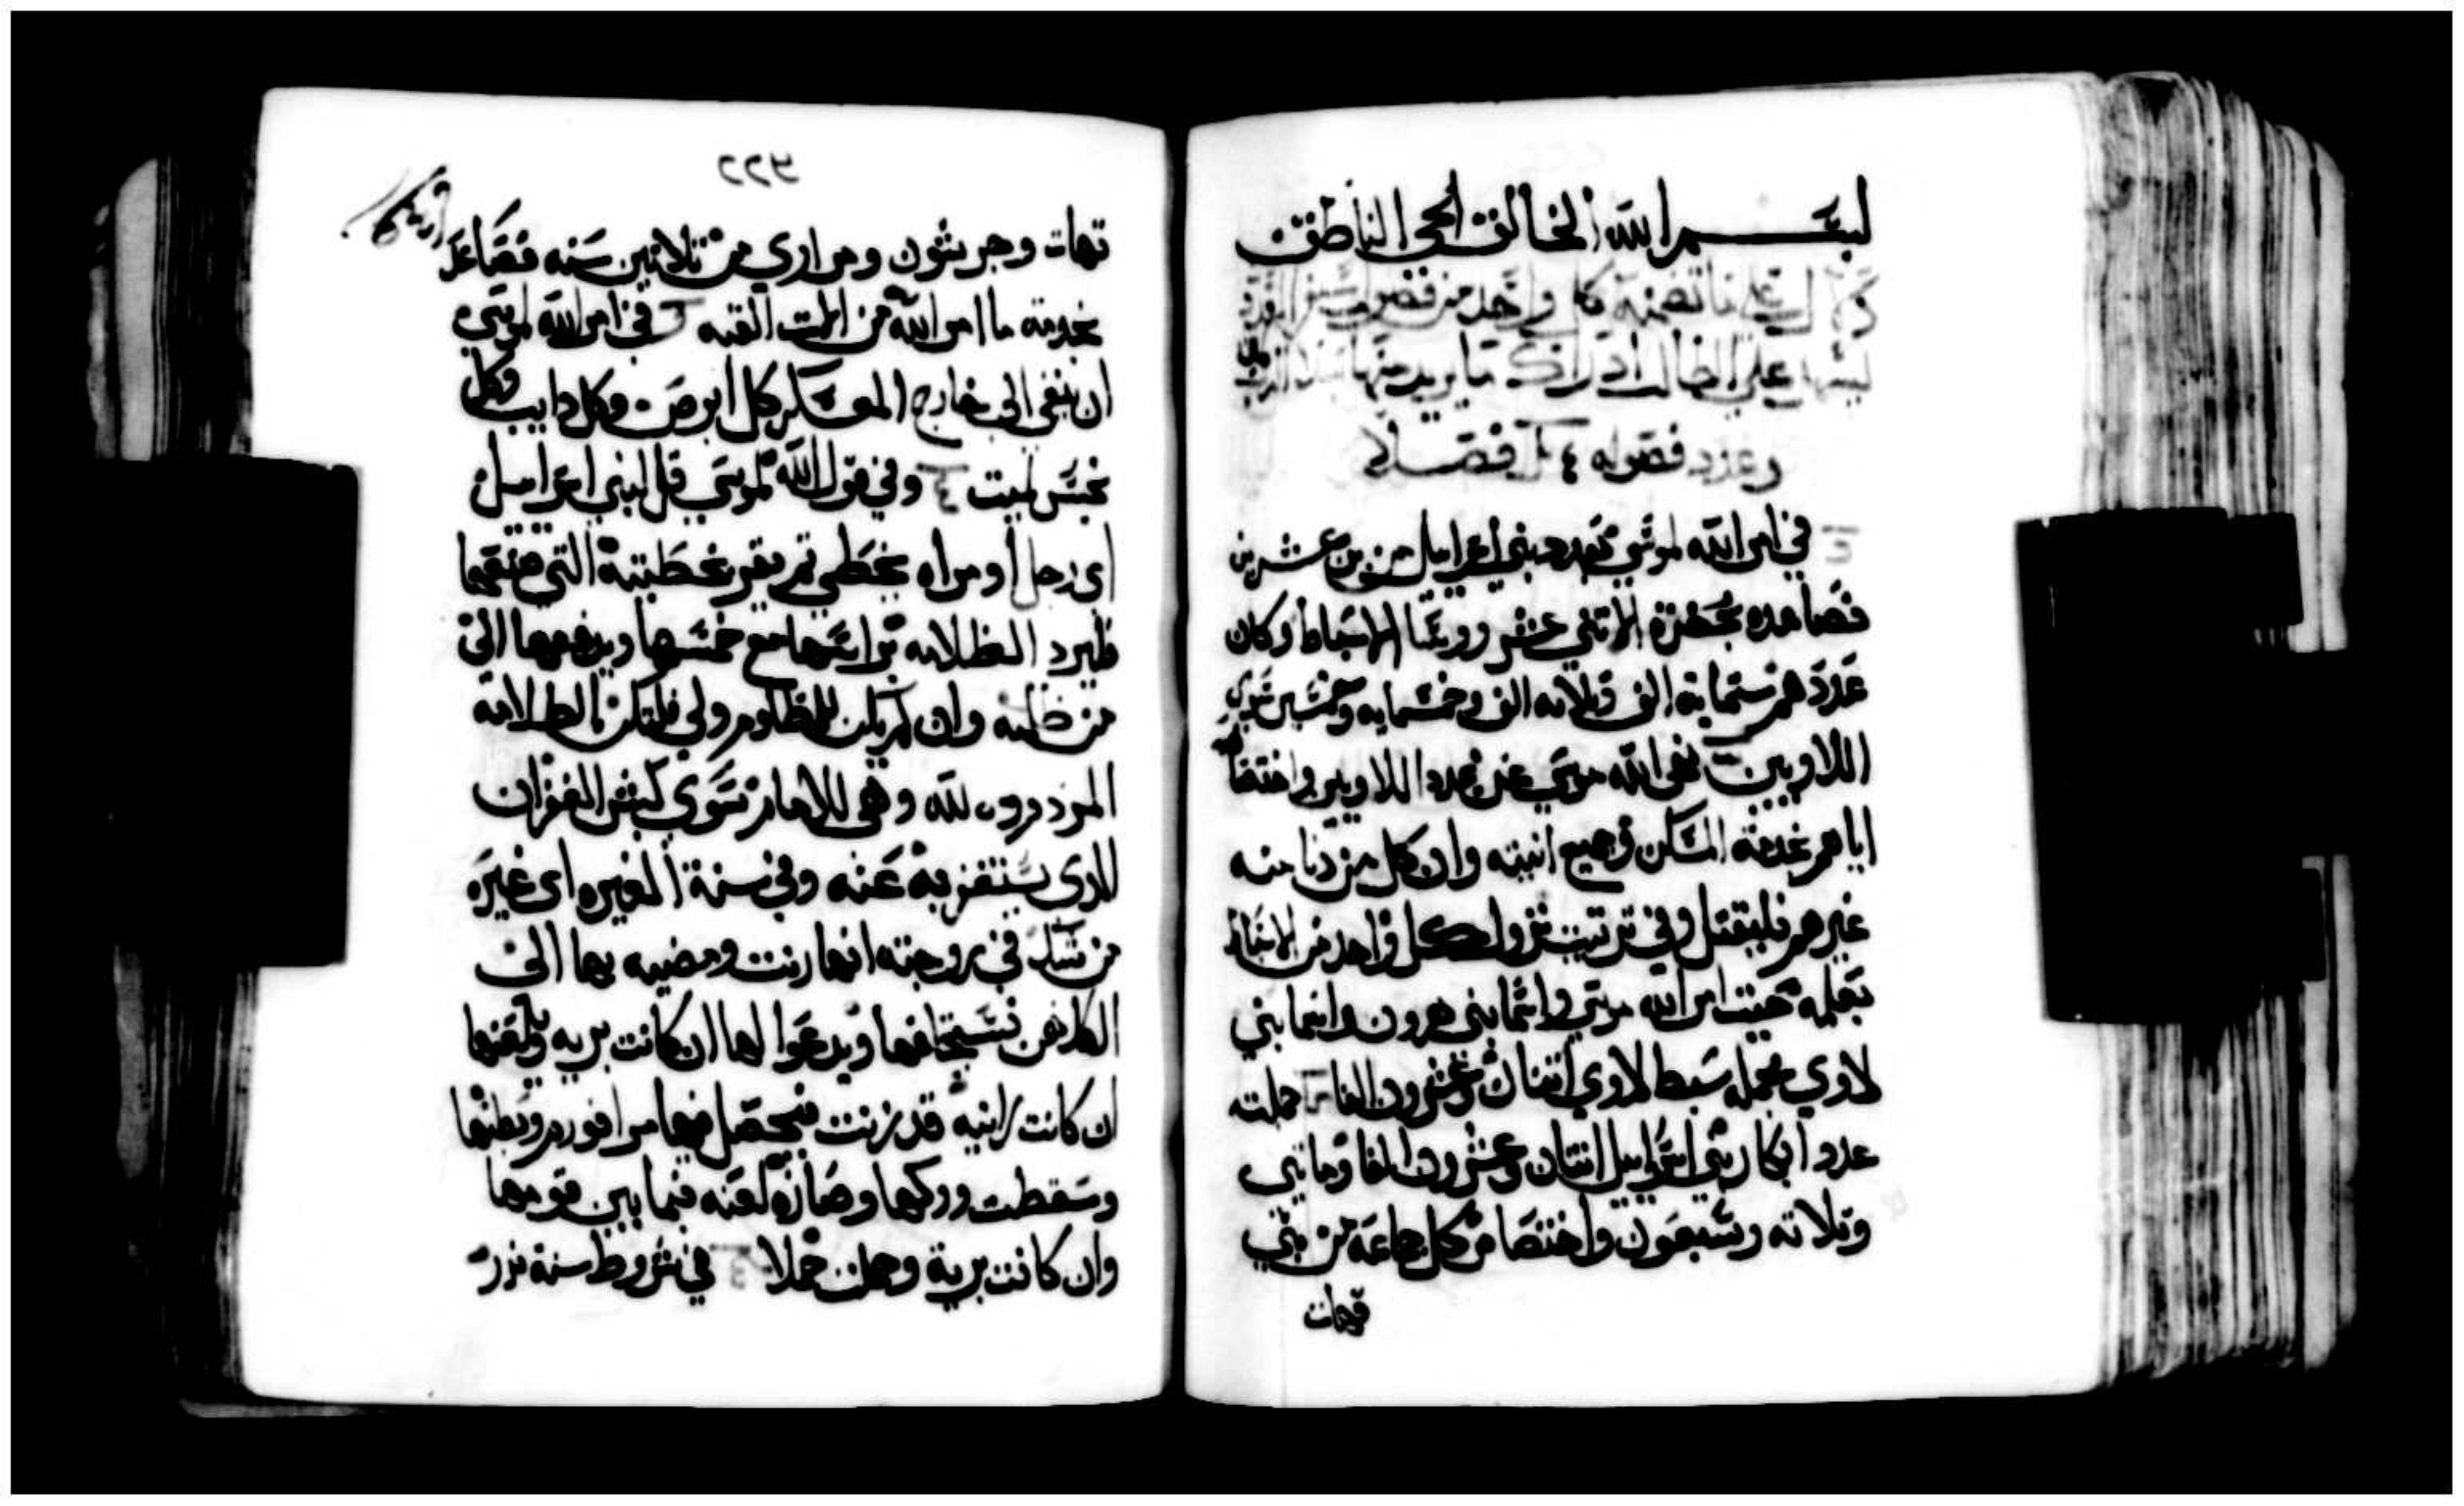 بسم الله الخالق الحي الناطق
ما تضمنه كل واحد من فصول سفر العدد
على الطالب ادراك ما يريد منها
وعدد فصوله فصلا
في امر الله لموسي بعدد بني اسراييل من بن عشرين
فصاعده بحضرة الاتني عشر رووسا الاسباط وكان
عددهم ستماية الف وتلاته الف وخمسمايه وخمسين سوي
اللاويين نهي الله موسي عن عدد اللاويين واختصا
اياهم بخدمة المسكن وجميع انيته وان كل من دنا منه
غيرهم فليقتل وفي ترتيب نزول كل واحد من الاسباط
بمحله حيت امر الله موسي واسما بني هرون واسما بني
لاوي فجمله سبط لاوي اتنان وعشرون الفا جملته
عدد ابكار بني اسراييل اتنان وعشرون الفا وماتيى
وتلاته وسبعون واختصا من كل جماعة من بني
قهات
٢٢٢
قهات وجرشون ومراري من تلاتين سنه فصاعد
بخدمة ما امر الله من الات القبه في امر الله لموسي
ان ينفي الي خارج المعسكر كل ابرص وكل دايب وكل
نجس لميت وفي قول الله لموسي قل لبني اسراييل
اي رجل او مراه يخطي تم يقر بخطيته التي صنعها
فليرد الظلامه براسها مع خمسها ويدفعها الي
من ظلمه وان لم يكن للمظلوم ولي فلتكن الظلامة
المردوده لله وهي للامام سوي كبش الغفران
للدي يستغفر به عنه وفي سنة الغيره اي غيرة
من شك في زوجته انها زنت ومضيه بها الي
الكاهن فيستحلفها ويدعوا لها ان كانت بريه ويلعنها
ان كانت زانيه قد زنت فيحصل فيها مرا فورم وبطنها
وسقطت وركها وصاره لعنه فيما بين قومها
وان كانت برية وحملت حملا في شروط سنة نزر